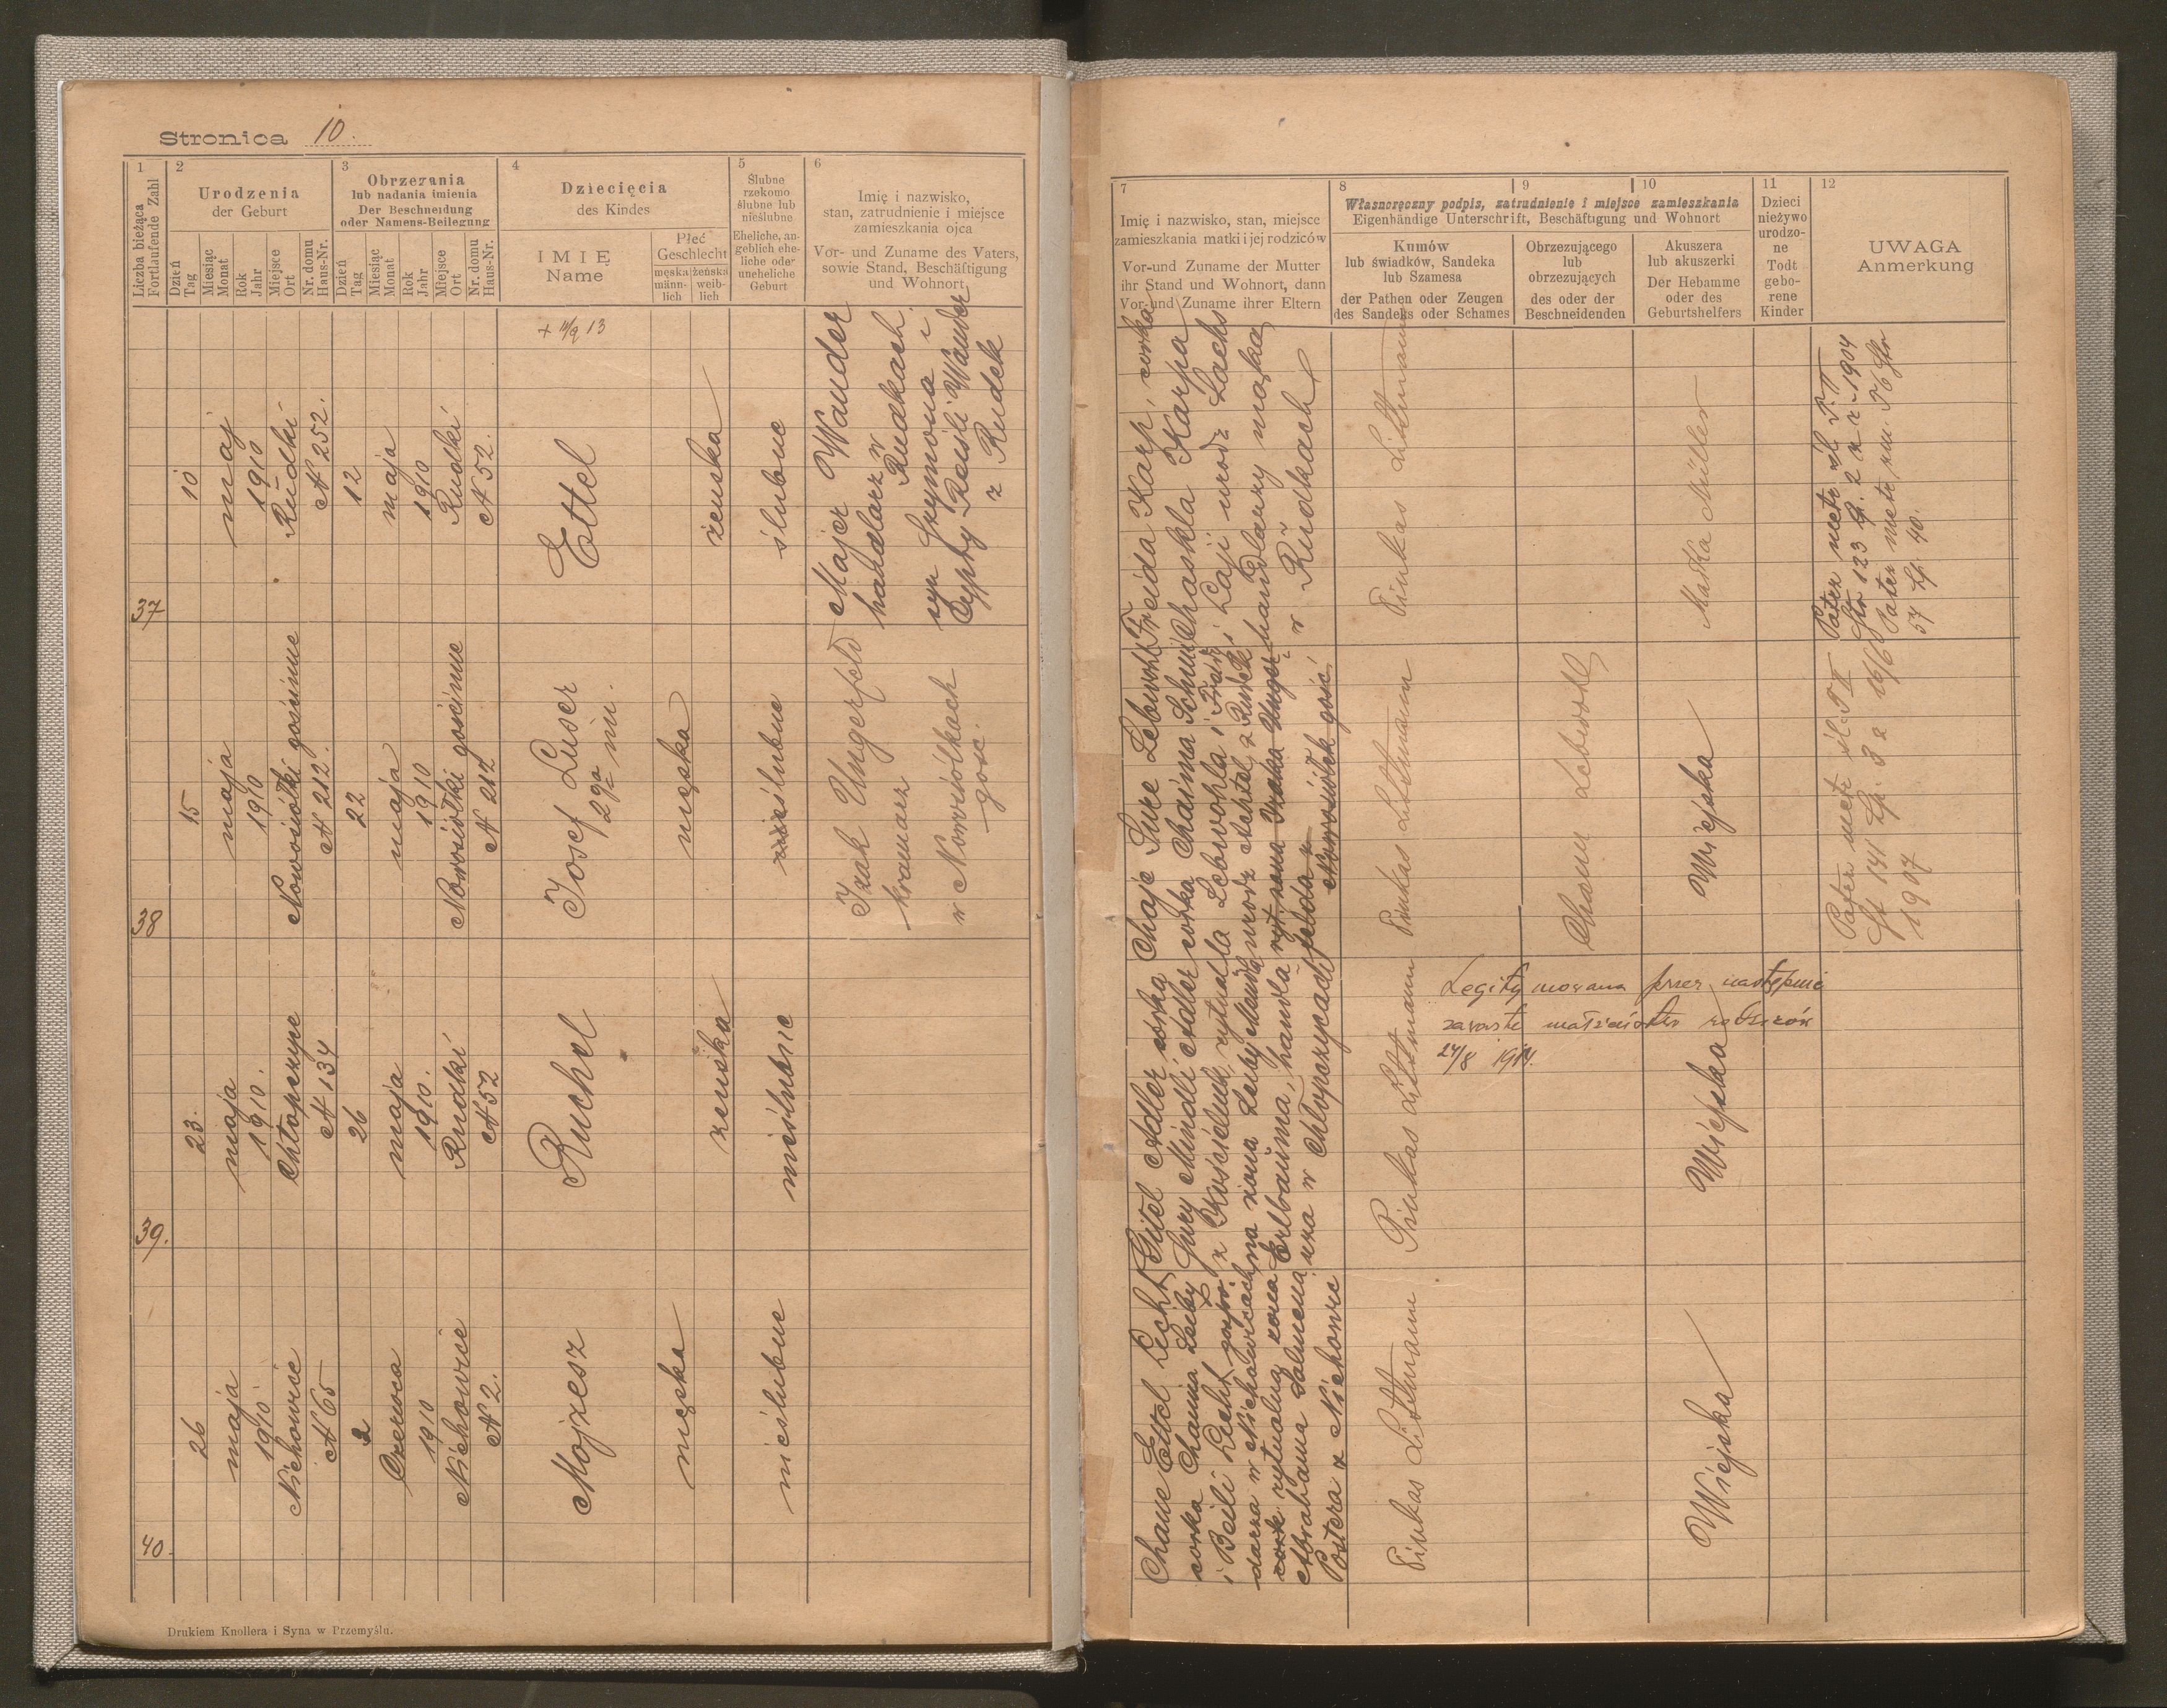 Stronica 10.
1
Liczba bieżąca
Fortlaufende Zahl
2
Urodzenia
der Geburt
Dzień
Tag
Miesiąc
Monat
Rok
Jahr
Miejsce
Ort
Nr. domu
Haus-Nr.
3
Obrzezania
lub nadania imienia
Der Beschneidung
oder Namens-Beilegung
Dzień
Tag
Miesiąc
Monat
Rok
Jahr
Miejsce
Ort
Nr. domu
Haus-Nr.
4
Dziecięcia
des Kindes
IMIĘ
Name
Płeć
Geschlecht
męska
männ-
lich
żeńska
weib-
lich
5
Ślubne
rzekomo
ślubne lub
nieślubne
Eheliche, an-
geblich ehe-
liche oder
uneheliche
Geburt
6
Imię i nazwisko,
stan, zatrudnienie i miejsce
zamieszkania ojca
Vor- und Zuname des Vaters,
sowie Stand, Beschäftigung
und Wohnort
37
10
maj
1910
Rudki
N 252.
12
maja
1910
Rudki
N 52.
+ 11/9 13
Ettel
żeńska
ślubne
Majer Wander
handlarz w
Rudkach
syn Szymona i
Cypry Reisli Wander
z Rudek
38
15
maja
1910
Nowosiółki gościnne
N 212.
22
maja
1910
Nowosiółki gościnne
N 212
Josef Luser
2ga im.
męska
nieślubne
Izak Ungerfeld
kramarz
w Nowosiółkach
gość.
39.
23.
maja
1910.
Chłopczyce
N 134
26
maja
1910.
Rudki
N 52
Ruchel
żeńska
nieślubne
40.
26
maja
1910
Nichowice
N 65
2
Czerwca
1910
Nichowice
N 2.
Mojzesz
męska
nieślubne
Drukiem Knollera i Syna w Przemyślu.
7
Imię i nazwisko, stan, miejsce
zamieszkania matki i jej rodziców
Vor-und Zuname der Mutter
ihr Stand und Wohnort, dann
Vor-und Zuname ihrer Eltern
8
9
10
Własnoręczny podpis, zatrudnienie i miejsce zamieszkania
Eigenhändige Unterschrift, Beschäftigung und Wohnort
Kumów
lub świadków, Sandeka
lub Szamesa
der Pathen oder Zeugen
des Sandeks oder Schames
Obrzezującego
lub
obrzezujących
des oder der
Beschneidenden
Akuszera
lub akuszerki
Der Hebamme
oder des
Geburtshelfers
11
Dzieci
nieżywo
urodzo-
ne
Todt
gebo-
rene
Kinder
12
UWAGA
Anmerkung
Freida Karp, córka
Chaskla Karpa
i Laji urodz Lachs
handlarzy
w Rudkach
Pinkas Littmann
Matka Müller
Chaje Sure Lebwohl
córka Chaima
Lebwohla i
urodz z Rudek
Nowosiółek gość.
Pinkas Littmann
Chaim Lebwohl
Wiejska
1907
Gitel Adler córka
Mindli Adler
z Kościelnik, rytualna
na żona Leiby
Erlbauma, handla
rza w Chłopczycach
Pinkas Littmann
Legitymowana przez następnie
zawarte małżeństwo rodziców
24/8 1914.
Wiejska
Chane Ettel Lecht
córka Chaima Leiby
i Beili Lecht
darza w Nichowicach
rytualna żona
Abrahama Salomona
Postera z Nichowic
Pinkas Littmann
Wiejska